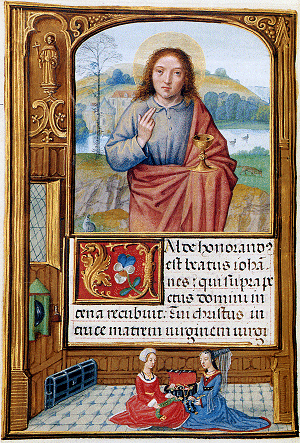 Valde honorand9
est beatus iohā-
nes: qui supra pe
ctus domini in
cena recubuit. Cui christus in
cruce matrem virginem virgi